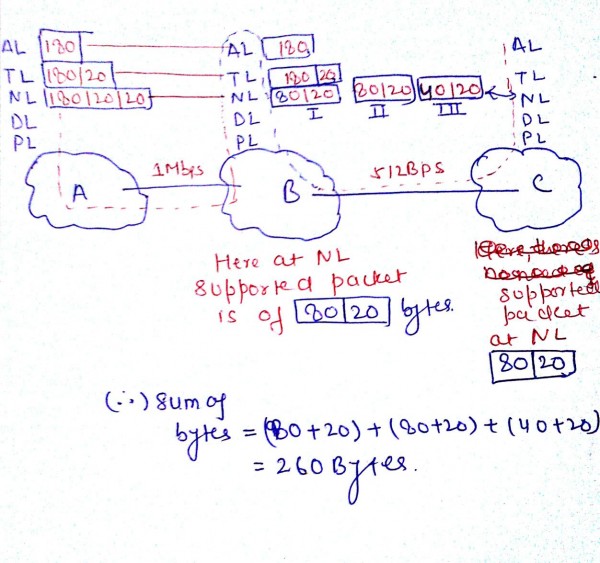 AL 180 AL 180 AL
TL 180 20 TL 180 20 TL
NL 180 20 20 NL 80 20 80 20 40 20 NL
DL DL I II III DL
PL PL PL
1Mbps 512BPS
A B C
Here at NL
supported packet
is of 80 20 bytes.
supported
packet
at NL
80 20
(∴) Sum of
bytes = (80+20) + (80+20) + (40+20)
= 260 Bytes.